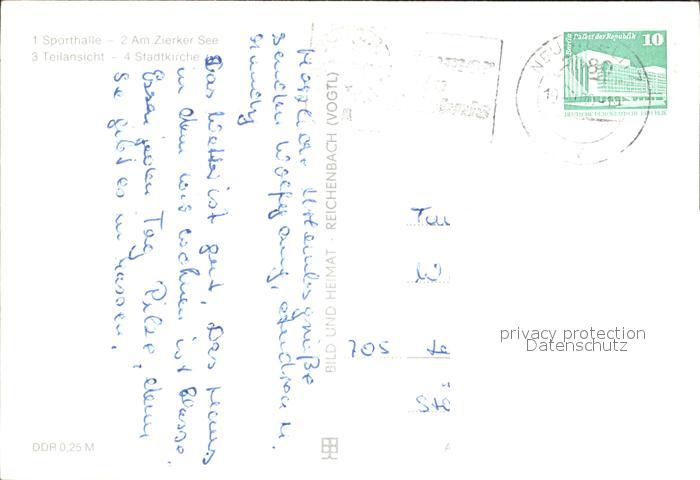 1 Sporthalle – 2 Am Zierker See
3 Teilansicht – 4 Stadtkirche
Herzliche Urlaubsgrüße
senden Wolfgang, Andrea u.
Mandy
Das Wetter ist gut. Das Haus
in dem wir wohnen ist Klasse.
Essen jeden Tag Pilze, denn
se gibt es in Massen.
BILD UND HEIMAT · REICHENBACH (VOGTL)
Berlin Palast der Republik
10
DEUTSCHE DEMOKRATISCHE REPUBLIK
NEU
705
privacy protection
Datenschutz
DDR 0,25 M
A